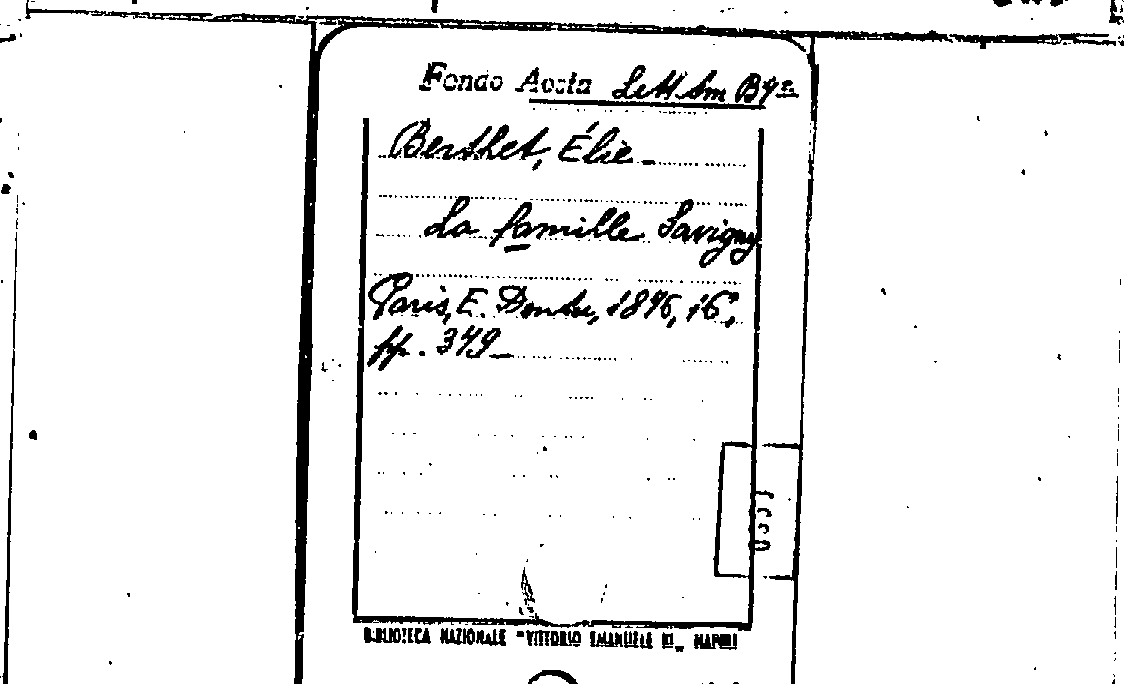 Fondo Aosta Lett Am B9
Berthet, Élie -
La famille Savigny
Paris, E. Dentu, 1876, 16°,
pp. 349 -
BIBLIOTECA NAZIONALE "VITTORIO EMANUELE III„ NAPOLI